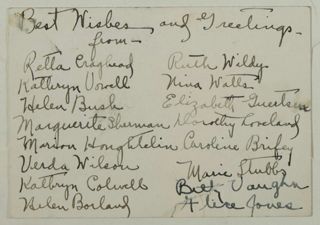 Best Wishes and Greetings -
from -
Retta Craghead Ruth Wildy
Kathryn Vowell Nina Watts
Helen Bush Elizabeth
Marguerite Sherman Dorothy Loveland
Marion Houghtelin Caroline
Verda Wilson Marie Stubbs
Kathryn Colwell Betty Vaughn
Helen Borland Alice Jones